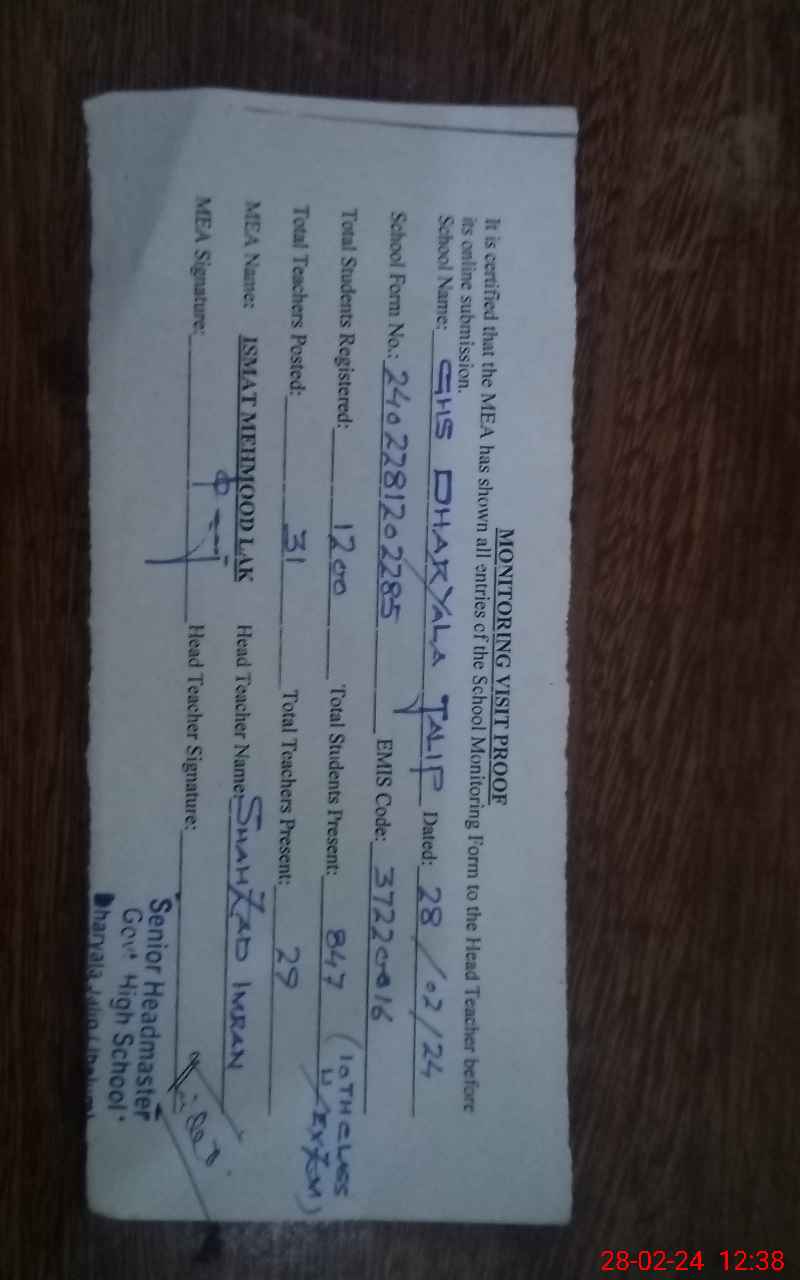 MONITORING VISIT PROOF
It is certified that the MEA has shown all entries of the School Monitoring Form to the Head Teacher before
its online submission.
School Name: GHS DHARYALA JALIP Dated: 28/02/24
School Form No.: 2402281202285 EMIS Code: 37220016
Total Students Registered: 1200 Total Students Present: 847 (10TH CLASS
U/EXAM)
Total Teachers Posted: 31 Total Teachers Present: 29
MEA Name: ISMAT MEHMOOD LAK Head Teacher Name: SHAHZAD IMRAN
MEA Signature: Head Teacher Signature:
Senior Headmaster
Govt High School
Dharyala Jalip
28-02-24 12:38